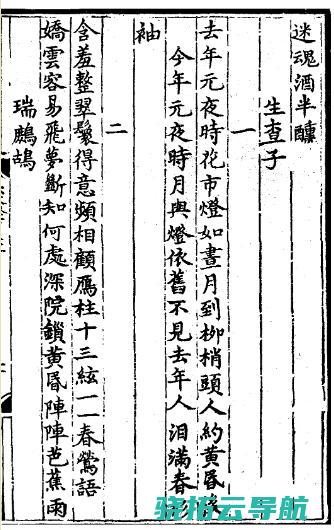 迷魂酒半醺
生查子
一
去年元夜時花市燈如晝月到柳梢頭人約黃昏後
今年元夜時月與燈依舊不見去年人泪滿春
袖
二
含羞整翠鬟得意頻相顧鴈柱十三絃一一春鶯語
嬌雲容易飛夢斷知何處深院鎖黃昏陣陣芭蕉雨
瑞鷓鴣
骁拓云导航